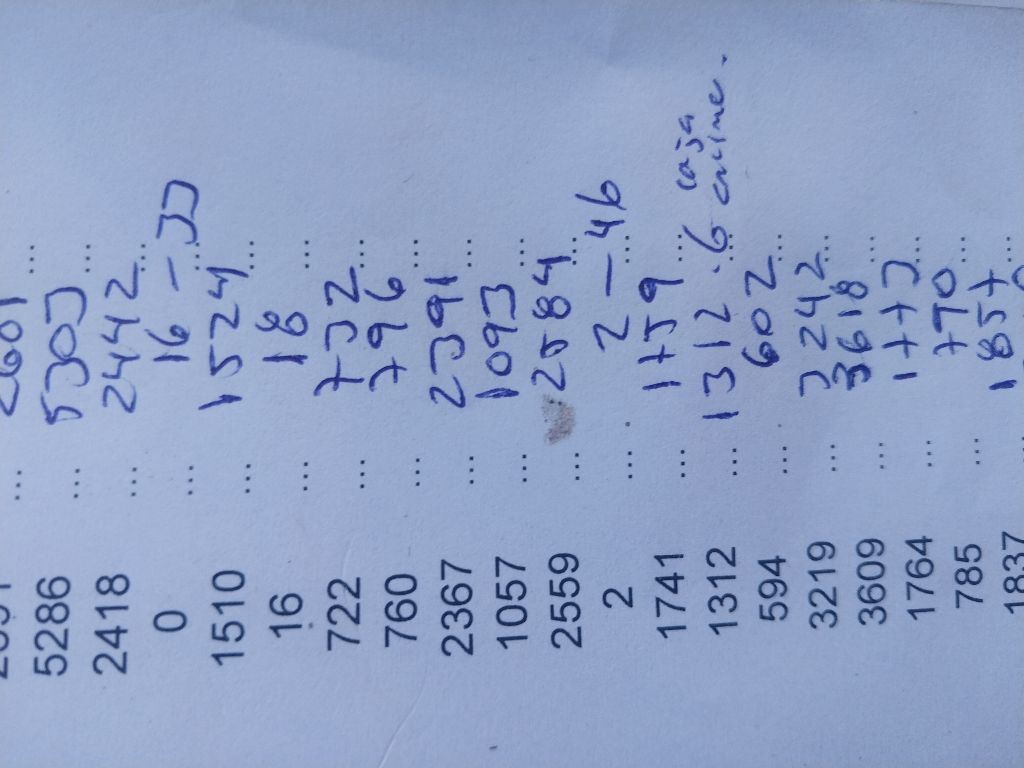 5286 ... 5303 ...
2418 ... 2442 ...
0 ... 16 – 33 ...
1510 ... 1524 ...
16 ... 18 ...
722 ... 732 ...
760 ... 796 ...
2367 ... 2391 ...
1057 ... 1093 ...
2559 ... 2584 ...
2 ... 2 – 46 ...
1741 ... 1759 ... caja
1312 ... 1312 . 6
594 ... 602 ...
3219 ... 3242 ...
3609 ... 3618 ...
1764 ... 1773 ...
785 ... 770 ...
1837 ... 1857 ...